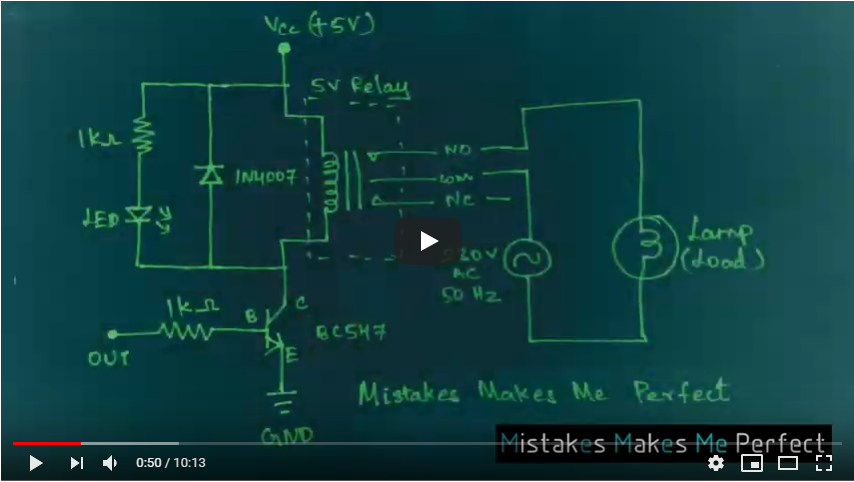 Vcc (+5V)
5V Relay
1kΩ
1N4007
NO
com
NC
LED
Lamp
(Load)
AC
50 Hz
1kΩ
B
C
BC547
E
OUT
GND
Mistakes Makes Me Perfect
Mistakes Makes Me Perfect
0:50 / 10:13